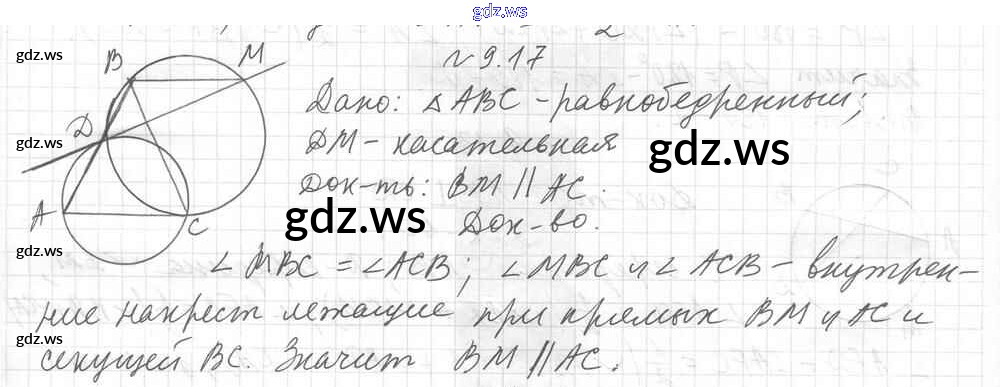 gdz.ws
gdz.ws
N 9.17
B M
Дано: △ABC - равнобедренный;
gdz.ws
D
DM - касательная
gdz.ws
Док-ть: BM || AC.
A C
gdz.ws
Док-во.
gdz.ws
∠MBC = ∠ACB; ∠MBC и ∠ACB - внутрен-
ние накрест лежащие при прямых BM и AC и
секущей BC. Значит BM || AC.